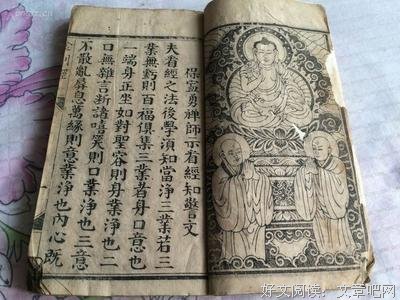 保寧勇禪師示看經知警文
夫看經之法後學須知當淨三業若三
業無虧則百福俱集三業者身口意也
一端身正坐如對聖容則身業淨也二
口無雜言斷諸嘻笑則口業淨也三意
不散亂屏息萬緣則意業淨也內心既
金剛經
好文阅读：文章吧网